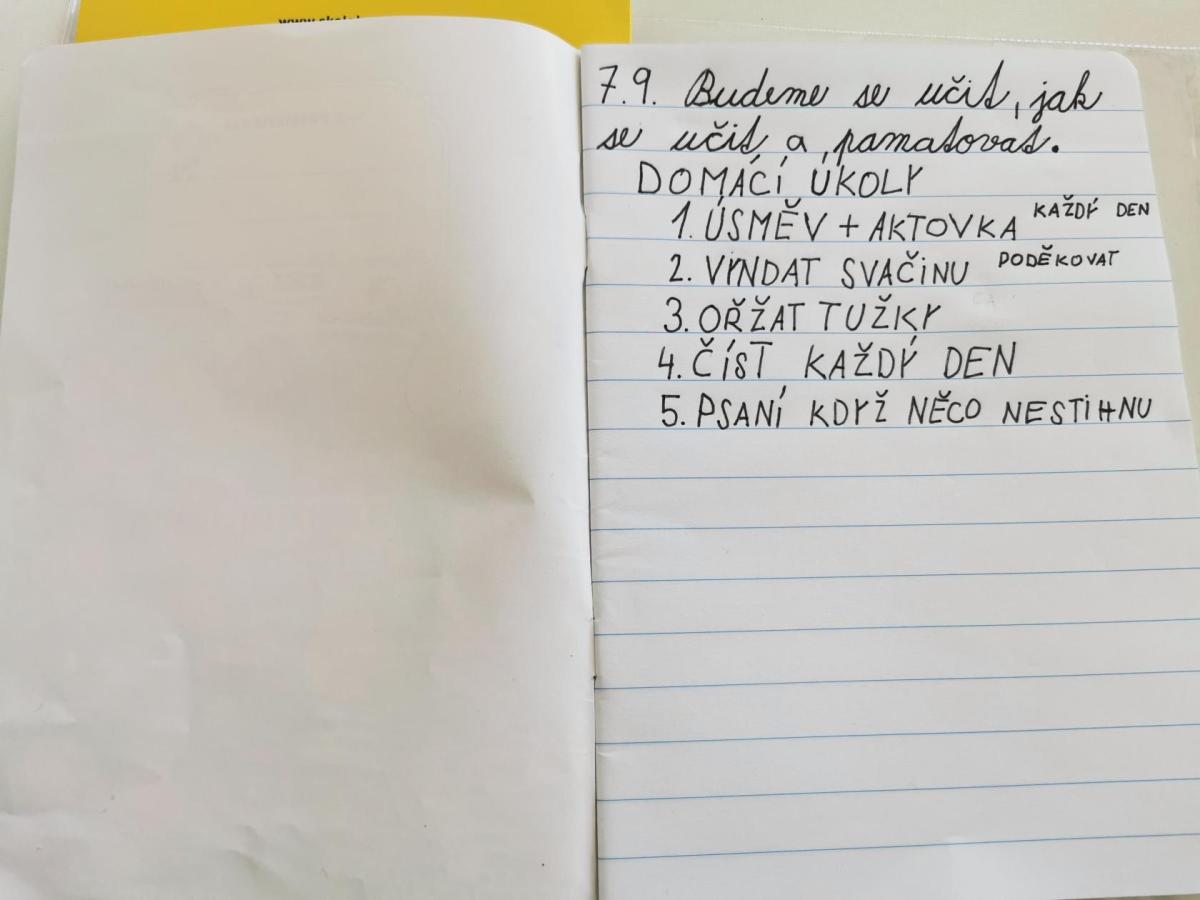 7.9. Budeme se učit, jak
se učit a pamatovat.
DOMÁCÍ ÚKOLY
1. ÚSMĚV + AKTOVKA KAŽDÝ DEN
2. VYNDAT SVAČINU PODĚKOVAT
3. OŘŽAT TUŽKY
4. ČÍST KAŽDÝ DEN
5. PSANÍ KDYŽ NĚCO NESTIHNU